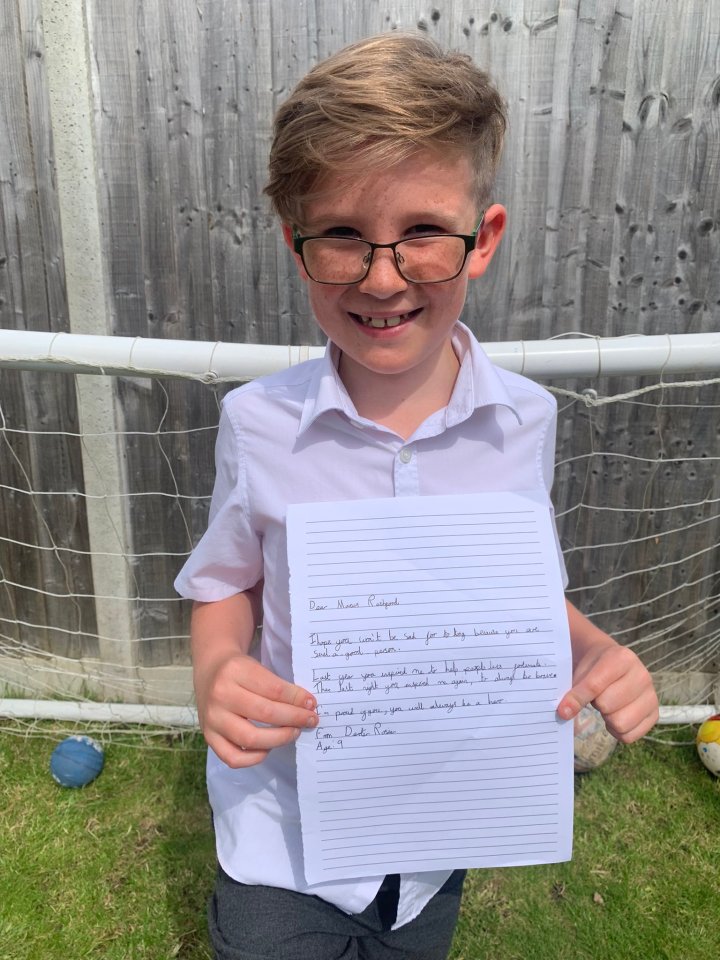 Dear Marcus Rashford
I hope you won't be sad for to long because you are
such a good person.
Last year you inspired me to help people less fortunate.
Then last night you inspired me again, to always be brave
I'm proud of you, you will always be a hero.
From Dexter Rosier
Age: 9